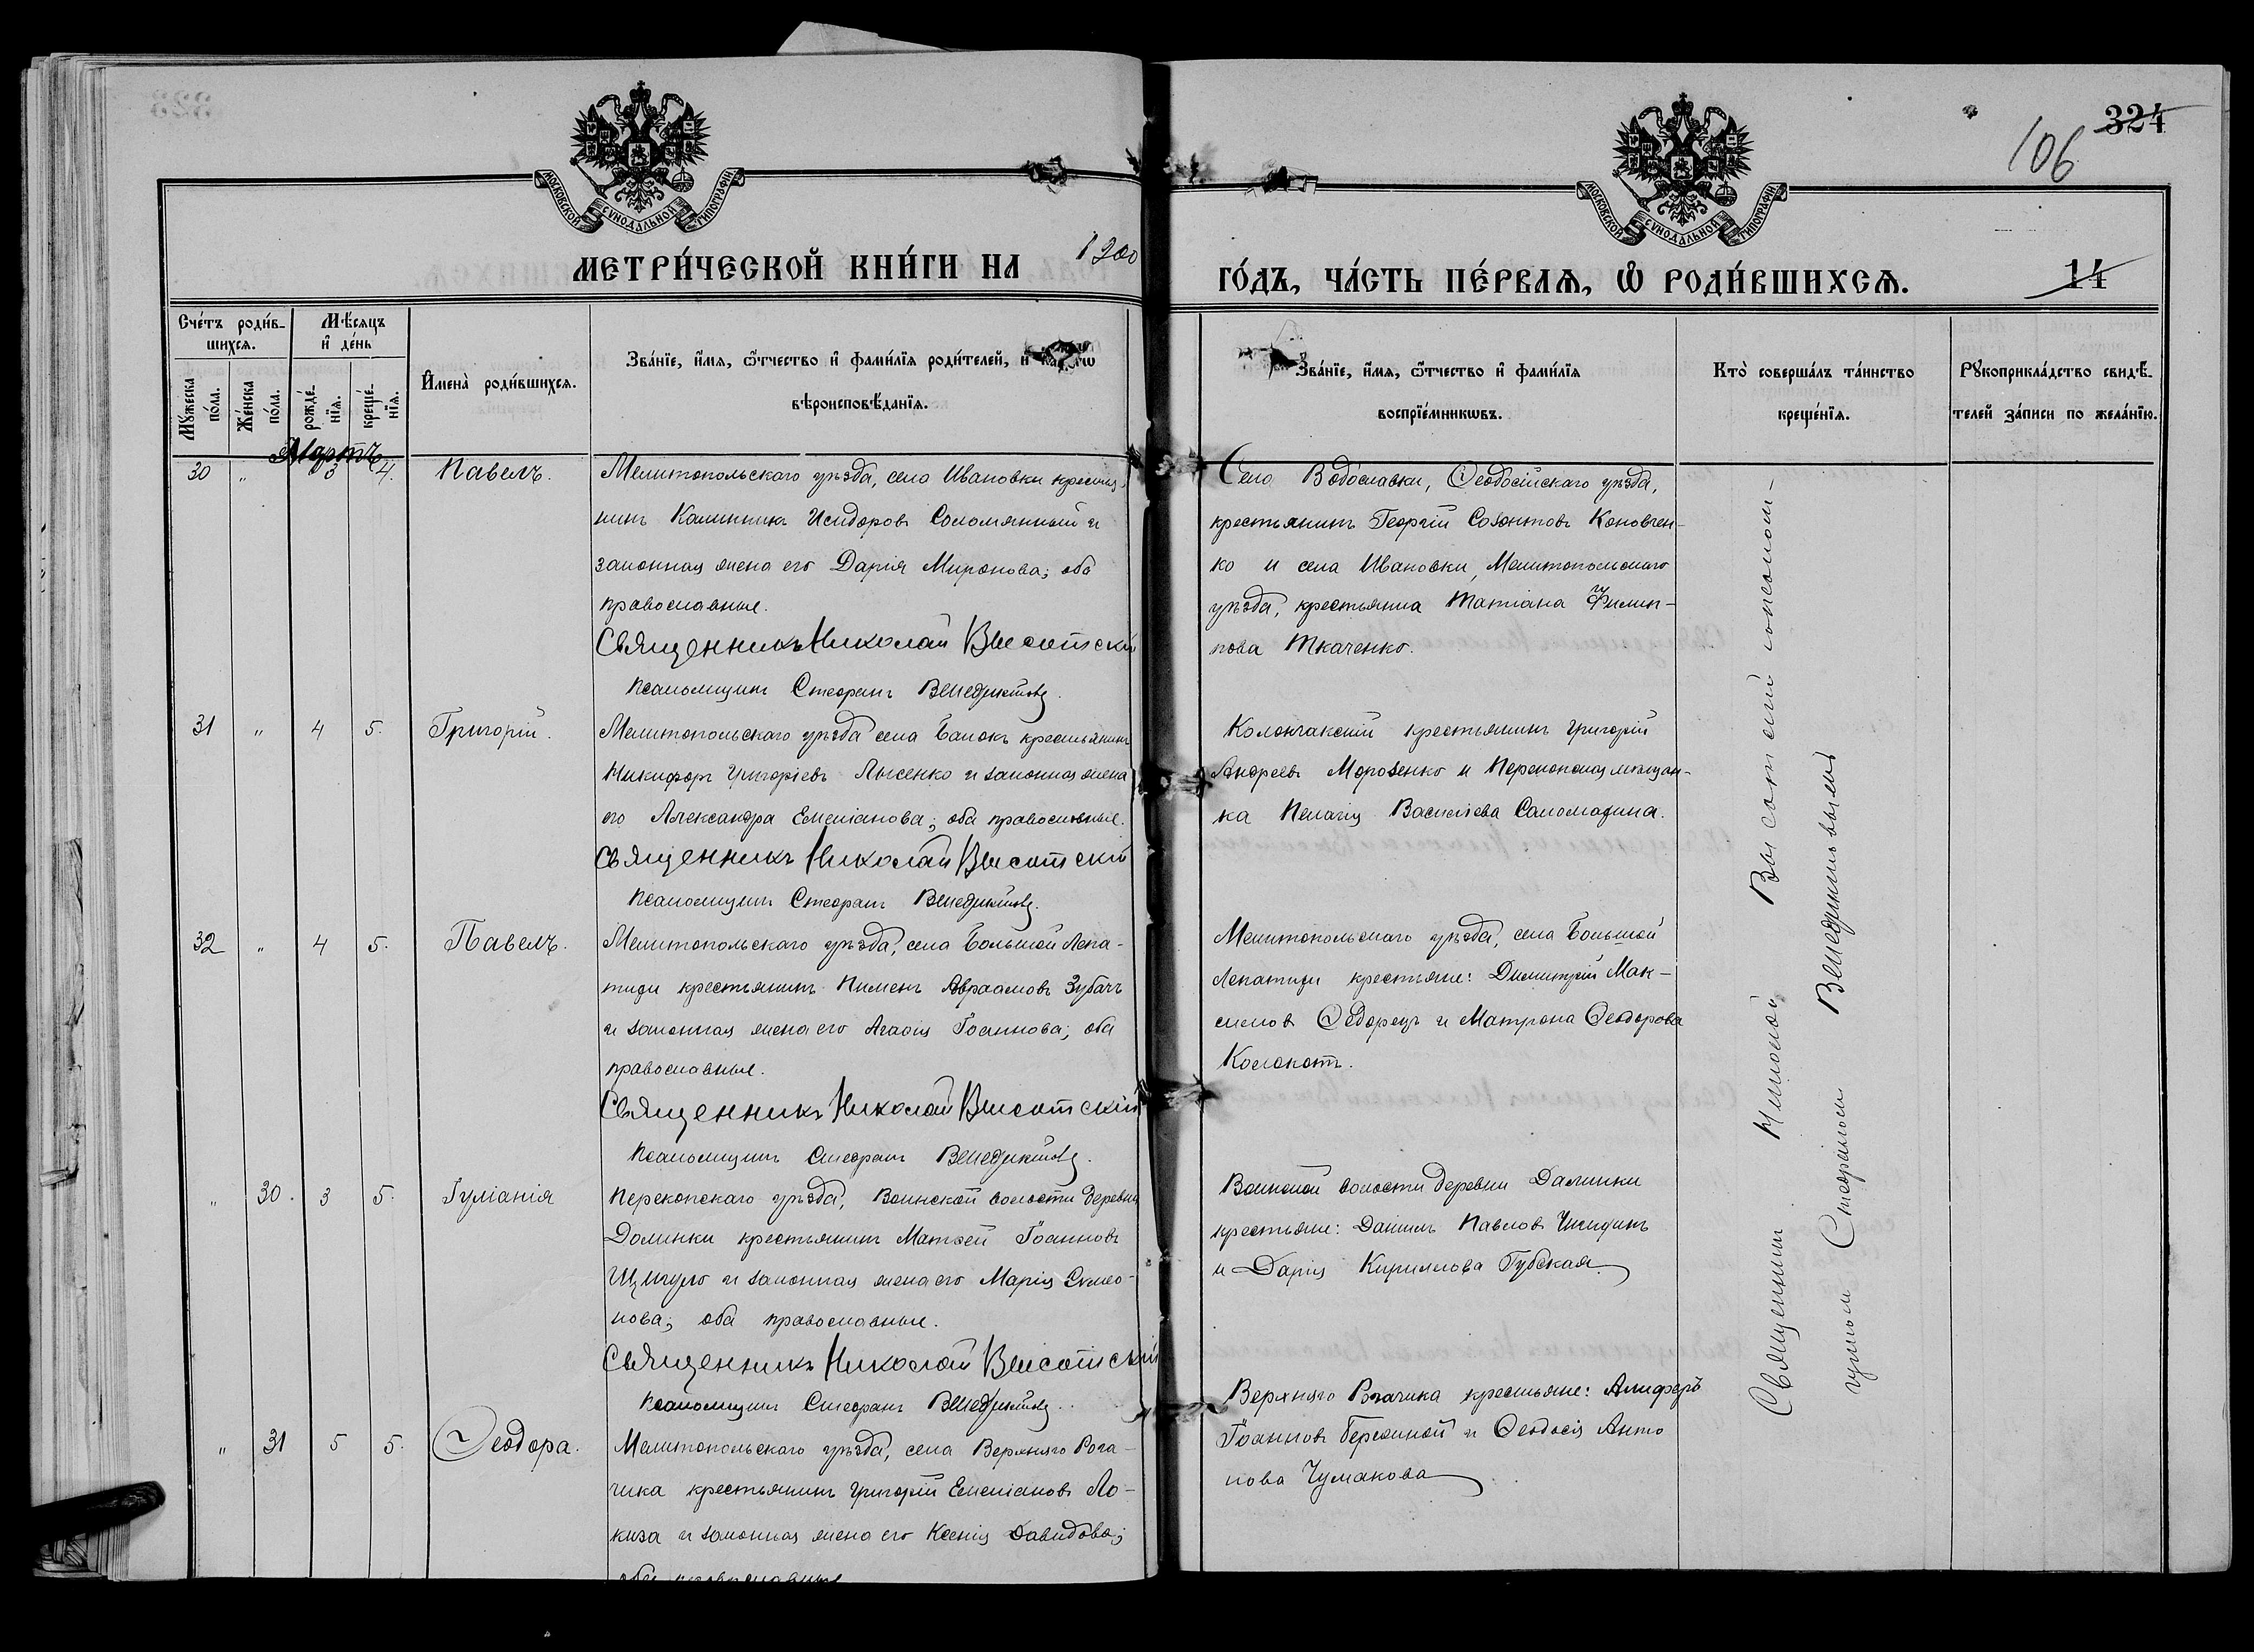 324
106
МОСКОВСКОЙ СѴНОДАЛЬНОЙ ТИПОГРАФІИ
МОСКОВСКОЙ СѴНОДАЛЬНОЙ ТИПОГРАФІИ
МЕТРИ́ЧЕСКОЙ КНИ́ГИ НА 1900
ГО́ДЪ, ЧА́СТЬ ПЕ́РВАѦ, Ѡ҆ РОДИ́ВШИХСѦ.
14
Сче́тъ роди́в-
шихсѧ.
Мꙋ́жеска
по́ла.
Же́нска
по́ла.
Мѣ́сѧцъ
и҆ де́нь
рожде́-
нїѧ.
креще́-
нїѧ.
И҆мена̀ роди́вшихсѧ.
Зва́нїе, и҆́мѧ, ѻ҆́тчество и҆ фами́лїѧ роди́телей, и҆
вѣроисповѣ́данїѧ.
Зва́нїе, и҆́мѧ, ѻ҆́тчество и҆ фами́лїѧ
воспрїе́мникѡвъ.
Кто̀ соверша́лъ та́инство
креще́нїѧ.
Рꙋкоприкла́дство свидѣ́-
телей за́писи по жела́нїю.
Мартъ
30 " 3 4. Павелъ.
Мелитопольскаго уѣзда, села Ивановки крестья-
нинъ Калинникъ Исидоровъ Соломянный и
законная жена его Дарія Миронова; оба
православные.
Священникъ Николай Высотскій
Псаломщикъ Стефанъ Венедиктовъ.
Село Водославки, Ѳеодосійскаго уѣзда,
крестьянинъ Георгій Созонтовъ Коновчен-
ко и села Ивановки, Мелитопольскаго
уѣзда, крестьянка Татіана Филип-
пова Ткаченко.
31 " 4 5. Григорій.
Мелитопольскаго уѣзда села Балокъ крестьянинъ
Никифоръ Григоріевъ Лысенко и законная жена
его Александра Емеліанова; оба православные.
Священникъ Николай Высотскій
Псаломщикъ Стефанъ Венедиктовъ.
Колончакскій крестьянинъ Григорій
Андреевъ Морозенко и Перекопская мѣщан-
ка Пелагія Василіева Саломадина.
32 " 4 5. Павелъ.
Мелитопольскаго уѣзда, села Большой Лепа-
тихи крестьянинъ Пименъ Авраамовъ Зубачъ
и законная жена его Агаѳія Іоаннова; оба
православные.
Священникъ Николай Высотскій
Псаломщикъ Стефанъ Венедиктовъ.
Мелитопольскаго уѣзда, села Большой
Лепатихи крестьяне: Димитрій Мак-
симовъ Ѳедорецъ и Матрона Ѳеодорова
" 30. 3 5. Іуліанія
Перекопскаго уѣзда, Воинской волости деревни
Долинки крестьянинъ Матѳей Іоанновъ
и законная жена его Марія Симео-
нова; оба православные.
Священникъ Николай Высотскій
Псаломщикъ Стефанъ Венедиктовъ.
Воинской волости деревни Далинки
крестьяне: Даніилъ Павловъ
и Дарія Кириллова Губская
" 31 5 5. Ѳеодора.
Мелитопольскаго уѣзда, села Верхняго Рога-
чика крестьянинъ Григорій Емеліановъ Ло-
киза и законная жена его Ксенія Давидова;
оба православные
Верхняго Рогачика крестьяне:
Іоанновъ Бережной и Ѳеодосія Анто
нова Чумакова
Священникъ Николай Высотскій съ псалом-
щикомъ Стефаномъ Венедиктовымъ